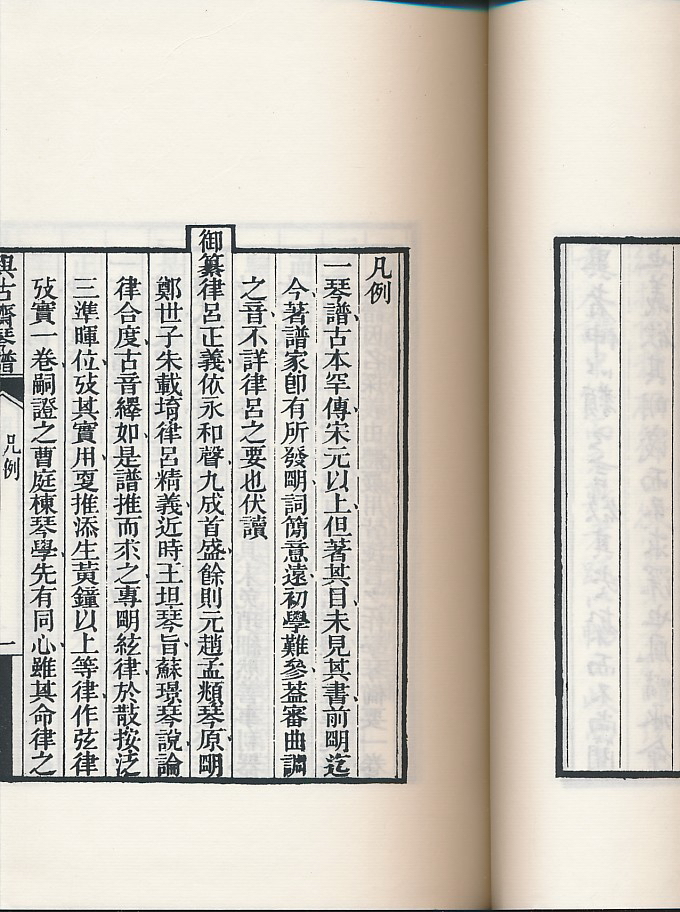 凡例
一琴譜古本罕傳宋元以上但著其目未見其書前朙迄
今著譜家卽有所發朙詞簡意遠初學難參葢審曲調
之音不詳律呂之要也伏讀
御纂律呂正義依永和聲九成首盛餘則元趙孟頫琴原朙
鄭世子朱載堉律呂精義近時王坦琴旨蘇璟琴說論
律合度古音繹如是譜推而求之專朙絃律於散按泛
三準暉位攷其實用㪅推添生黃鐘以上等律作弦律
攷實一卷嗣證之曹庭棟琴學先有同心雖其命律之
與古齋琴譜
凡例
一